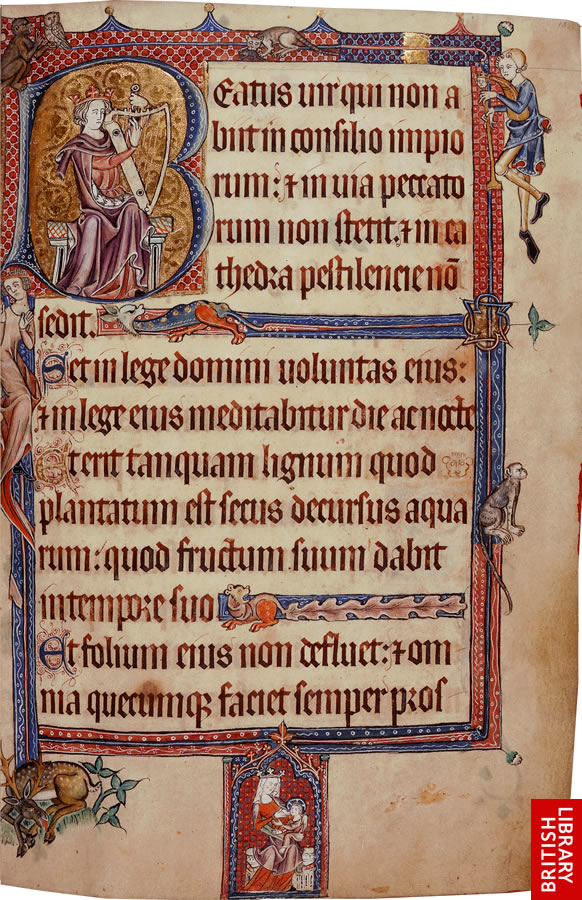 Beatus uir qui non a
biit in consilio impio
rum: ⁊ in uia peccato
rum non stetit, ⁊ in ca
thedra pestilencie nō
sedit.
Set in lege domini uoluntas eius:
⁊ in lege eius meditabitur die ac nocte
Et erit tanquam lignum quod
plantatum est secus decursus aqua
rum: quod fructum suum dabit
in tempore suo
Et folium eius non defluet: ⁊ om
nia quecumqꝫ faciet semper pros
BRITISH
LIBRARY